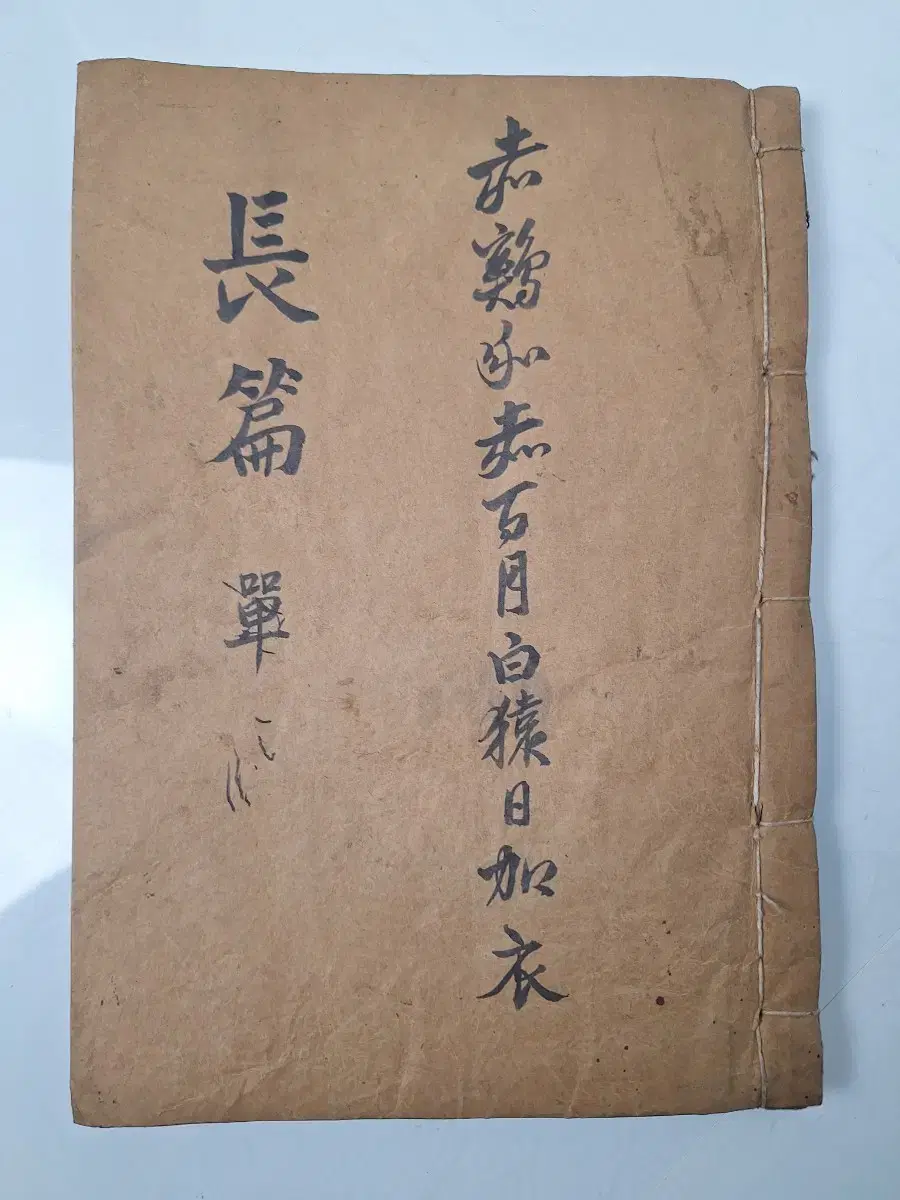 赤鷄赤百月白猿日加衣
長篇 單